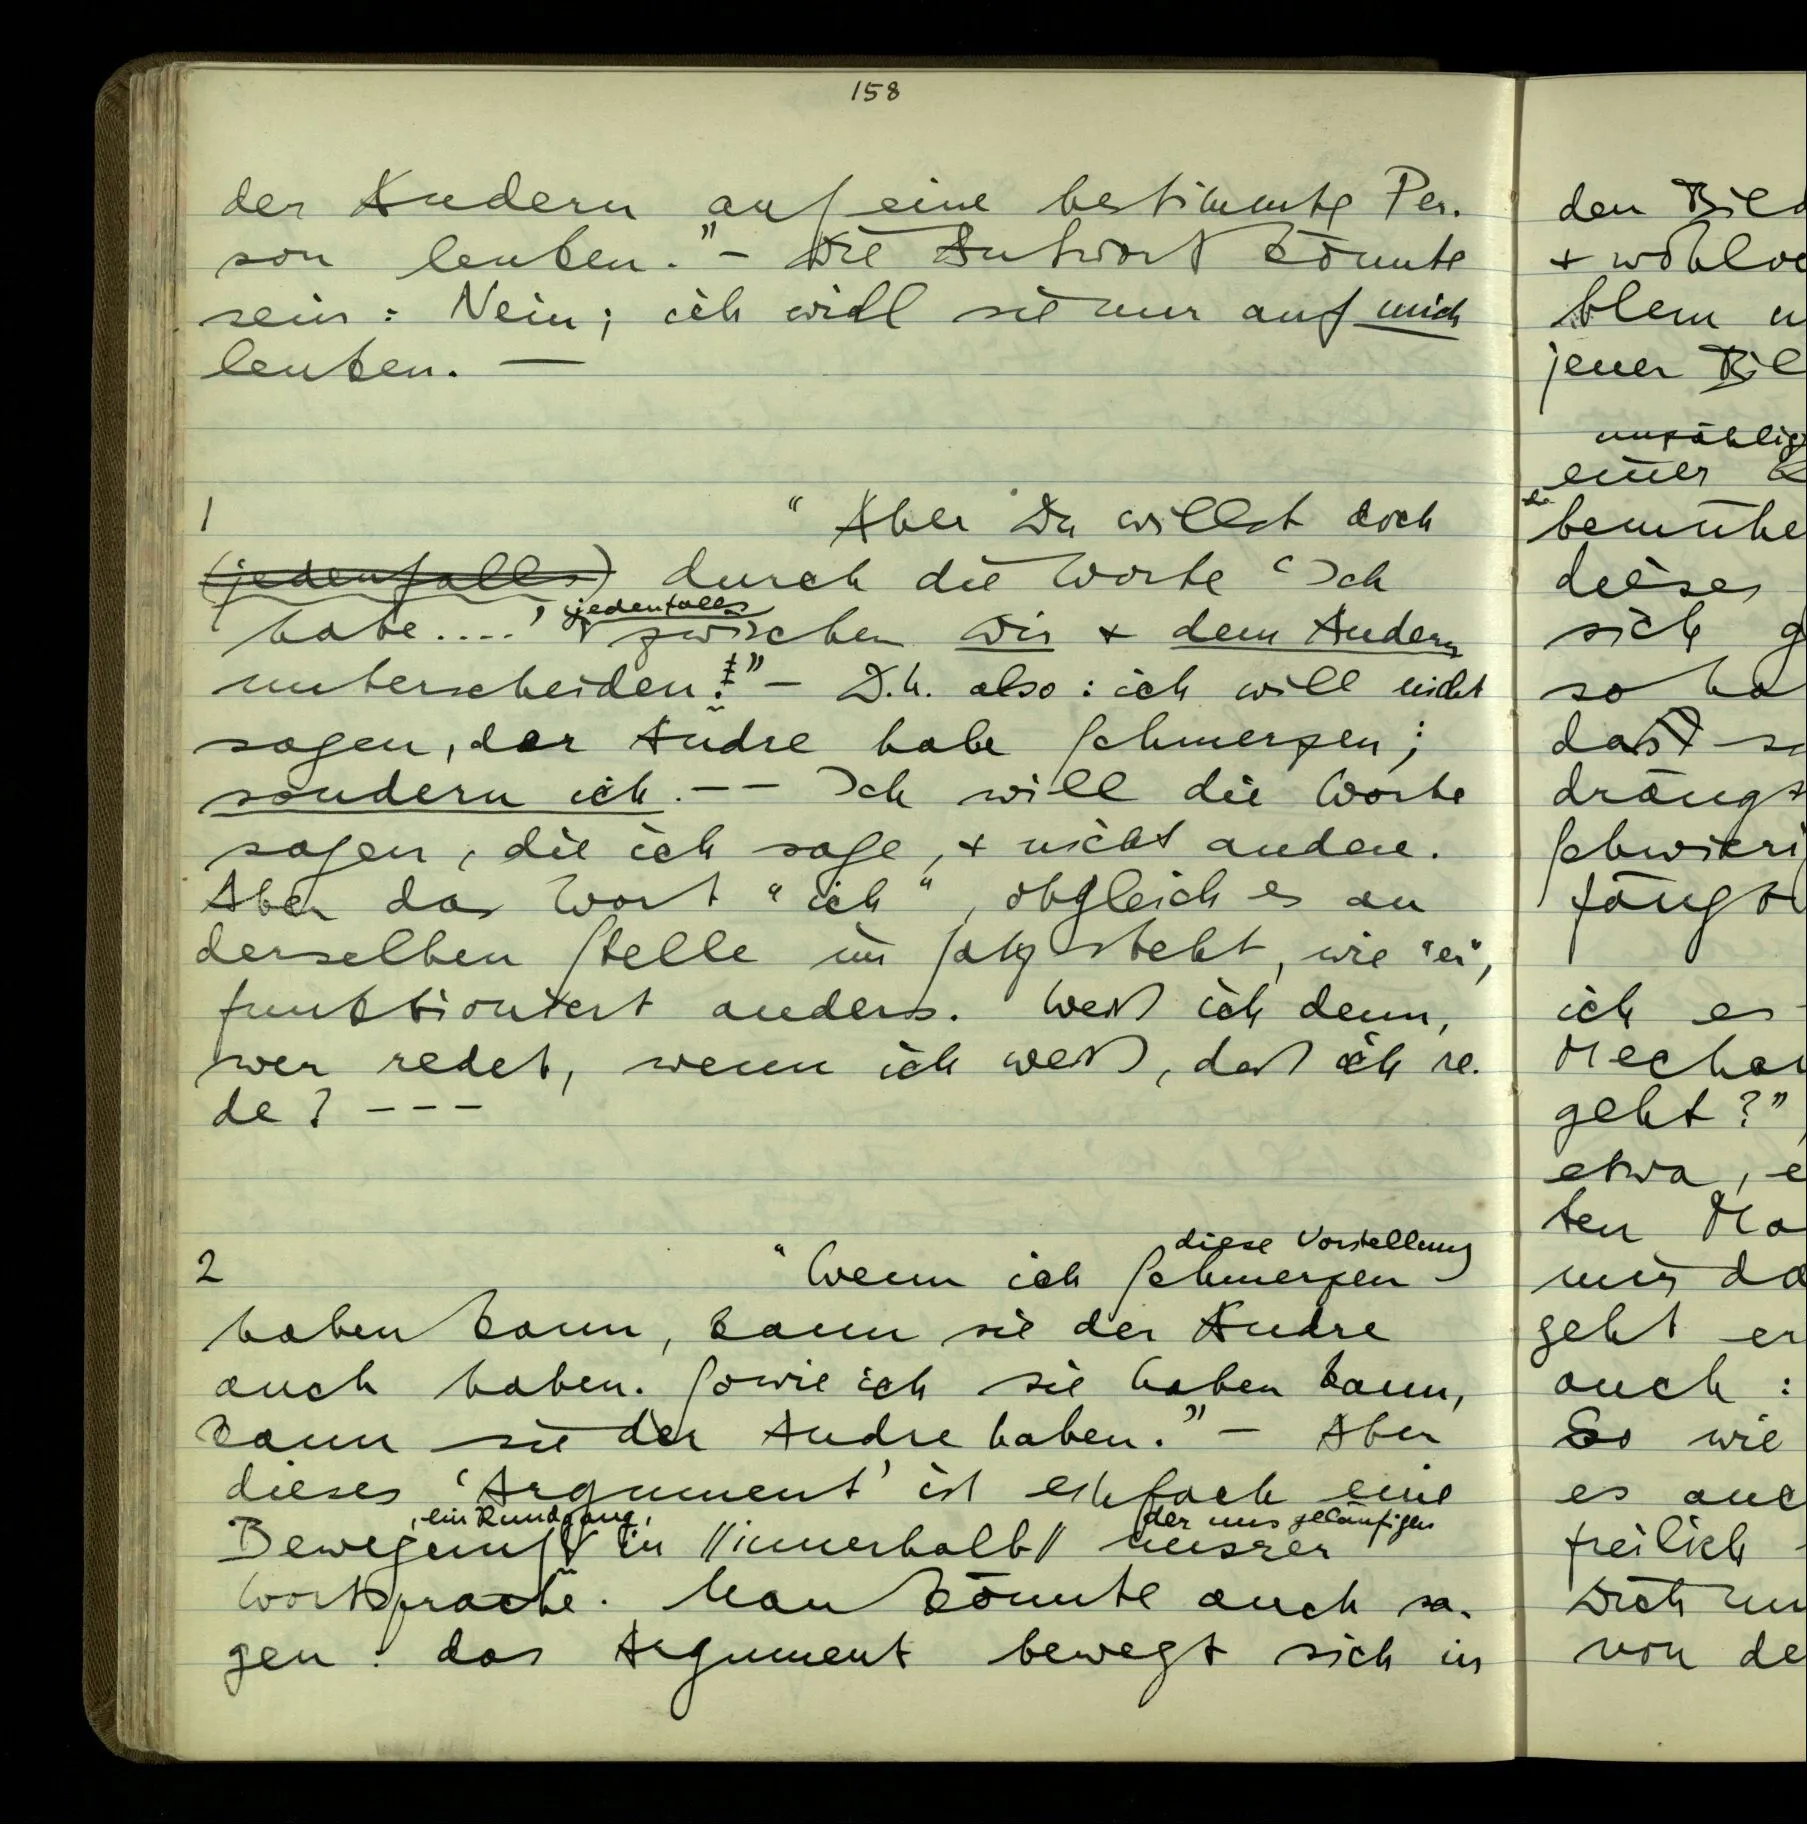 158
der Andern auf eine bestimmte Per-
son lenken." – Die Antwort könnte
sein: Nein; ich will sie nur auf mich
lenken. —
1 "Aber Du willst doch
(jedenfalls) durch die Worte 'Ich
jedenfalls
habe....' zwischen Dir & dem Andern
unterscheiden!" – D.h. also: ich will nicht
sagen, der Andre habe Schmerzen;
sondern ich. – – Ich will die Worte
sagen, die ich sage, & nicht andere.
Aber das Wort "ich", obgleich es an
derselben Stelle im Satz steht, wie "er",
funktioniert anders. Weiß ich denn,
wer redet, wenn ich weiß, daß ich re-
de? – – –
diese Vorstellung
2 "Wenn ich Schmerzen
haben kann, kann sie der Andre
auch haben. Sowie ich sie haben kann,
kann sie der Andre haben." – Aber
dieses 'Argument' ist einfach eine
, ein Rundgang, der uns geläufigen
Bewegung in //innerhalb// unsrer
Wortsprache. Man könnte auch sa-
gen: das Argument bewegt sich in
den Bild
& wohl
blem
jener Bil
unzählig
einer
bemühe
dieses
sich g
so ha
daß
drängt
Schwieri
fängt
ich es
Mechan
geht?"
etwa, e
ten Ma
mir da
geht er
auch:
So wie
es auc
freilich
von de